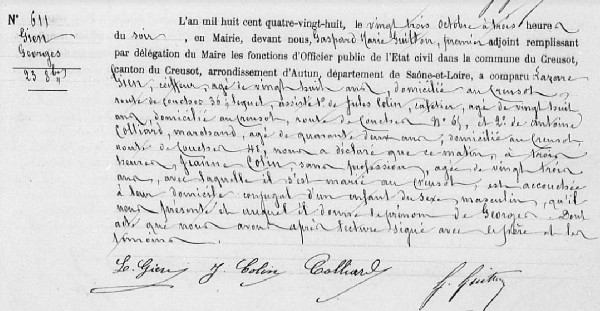 N° 611
Gien
Georges
23 8bre
L'an mil huit cent quatre-vingt-huit, le vingt trois octobre à trois heures
du soir, en Mairie, devant nous, Gaspard Marie Guitton, premier adjoint remplissant
par délégation du Maire les fonctions d'Officier public de l'Etat civil dans la commune du Creusot,
(canton du Creusot, arrondissement d'Autun, département de Saône-et-Loire, a comparu Lazare
Gien, coiffeur, agé de vingt huit ans, domicilié au Creusot,
route de Couches 36; lequel, assisté 1° de Jules Colin, cafetier, agé de vingt huit
ans, domicilié au Creusot, route de Couches N° 65, et 2° de Antoine
Colliard, marchand, agé de quarante deux ans, domicilié au Creusot,
route de Couches 41, nous a déclaré que ce matin, à trois
heures, Jeanne Colin, sans profession, agée de vingt trois
ans, avec laquelle il s'est marié au Creusot, est accouchée
à leur domicile conjugal d'un enfant du sexe masculin, qu'il
nous présente et auquel il donne le prénom de Georges. Dont
acte que nous avons après lecture signé avec le père et les
témoins.
L. Gien J. Colin Colliard G. Guitton